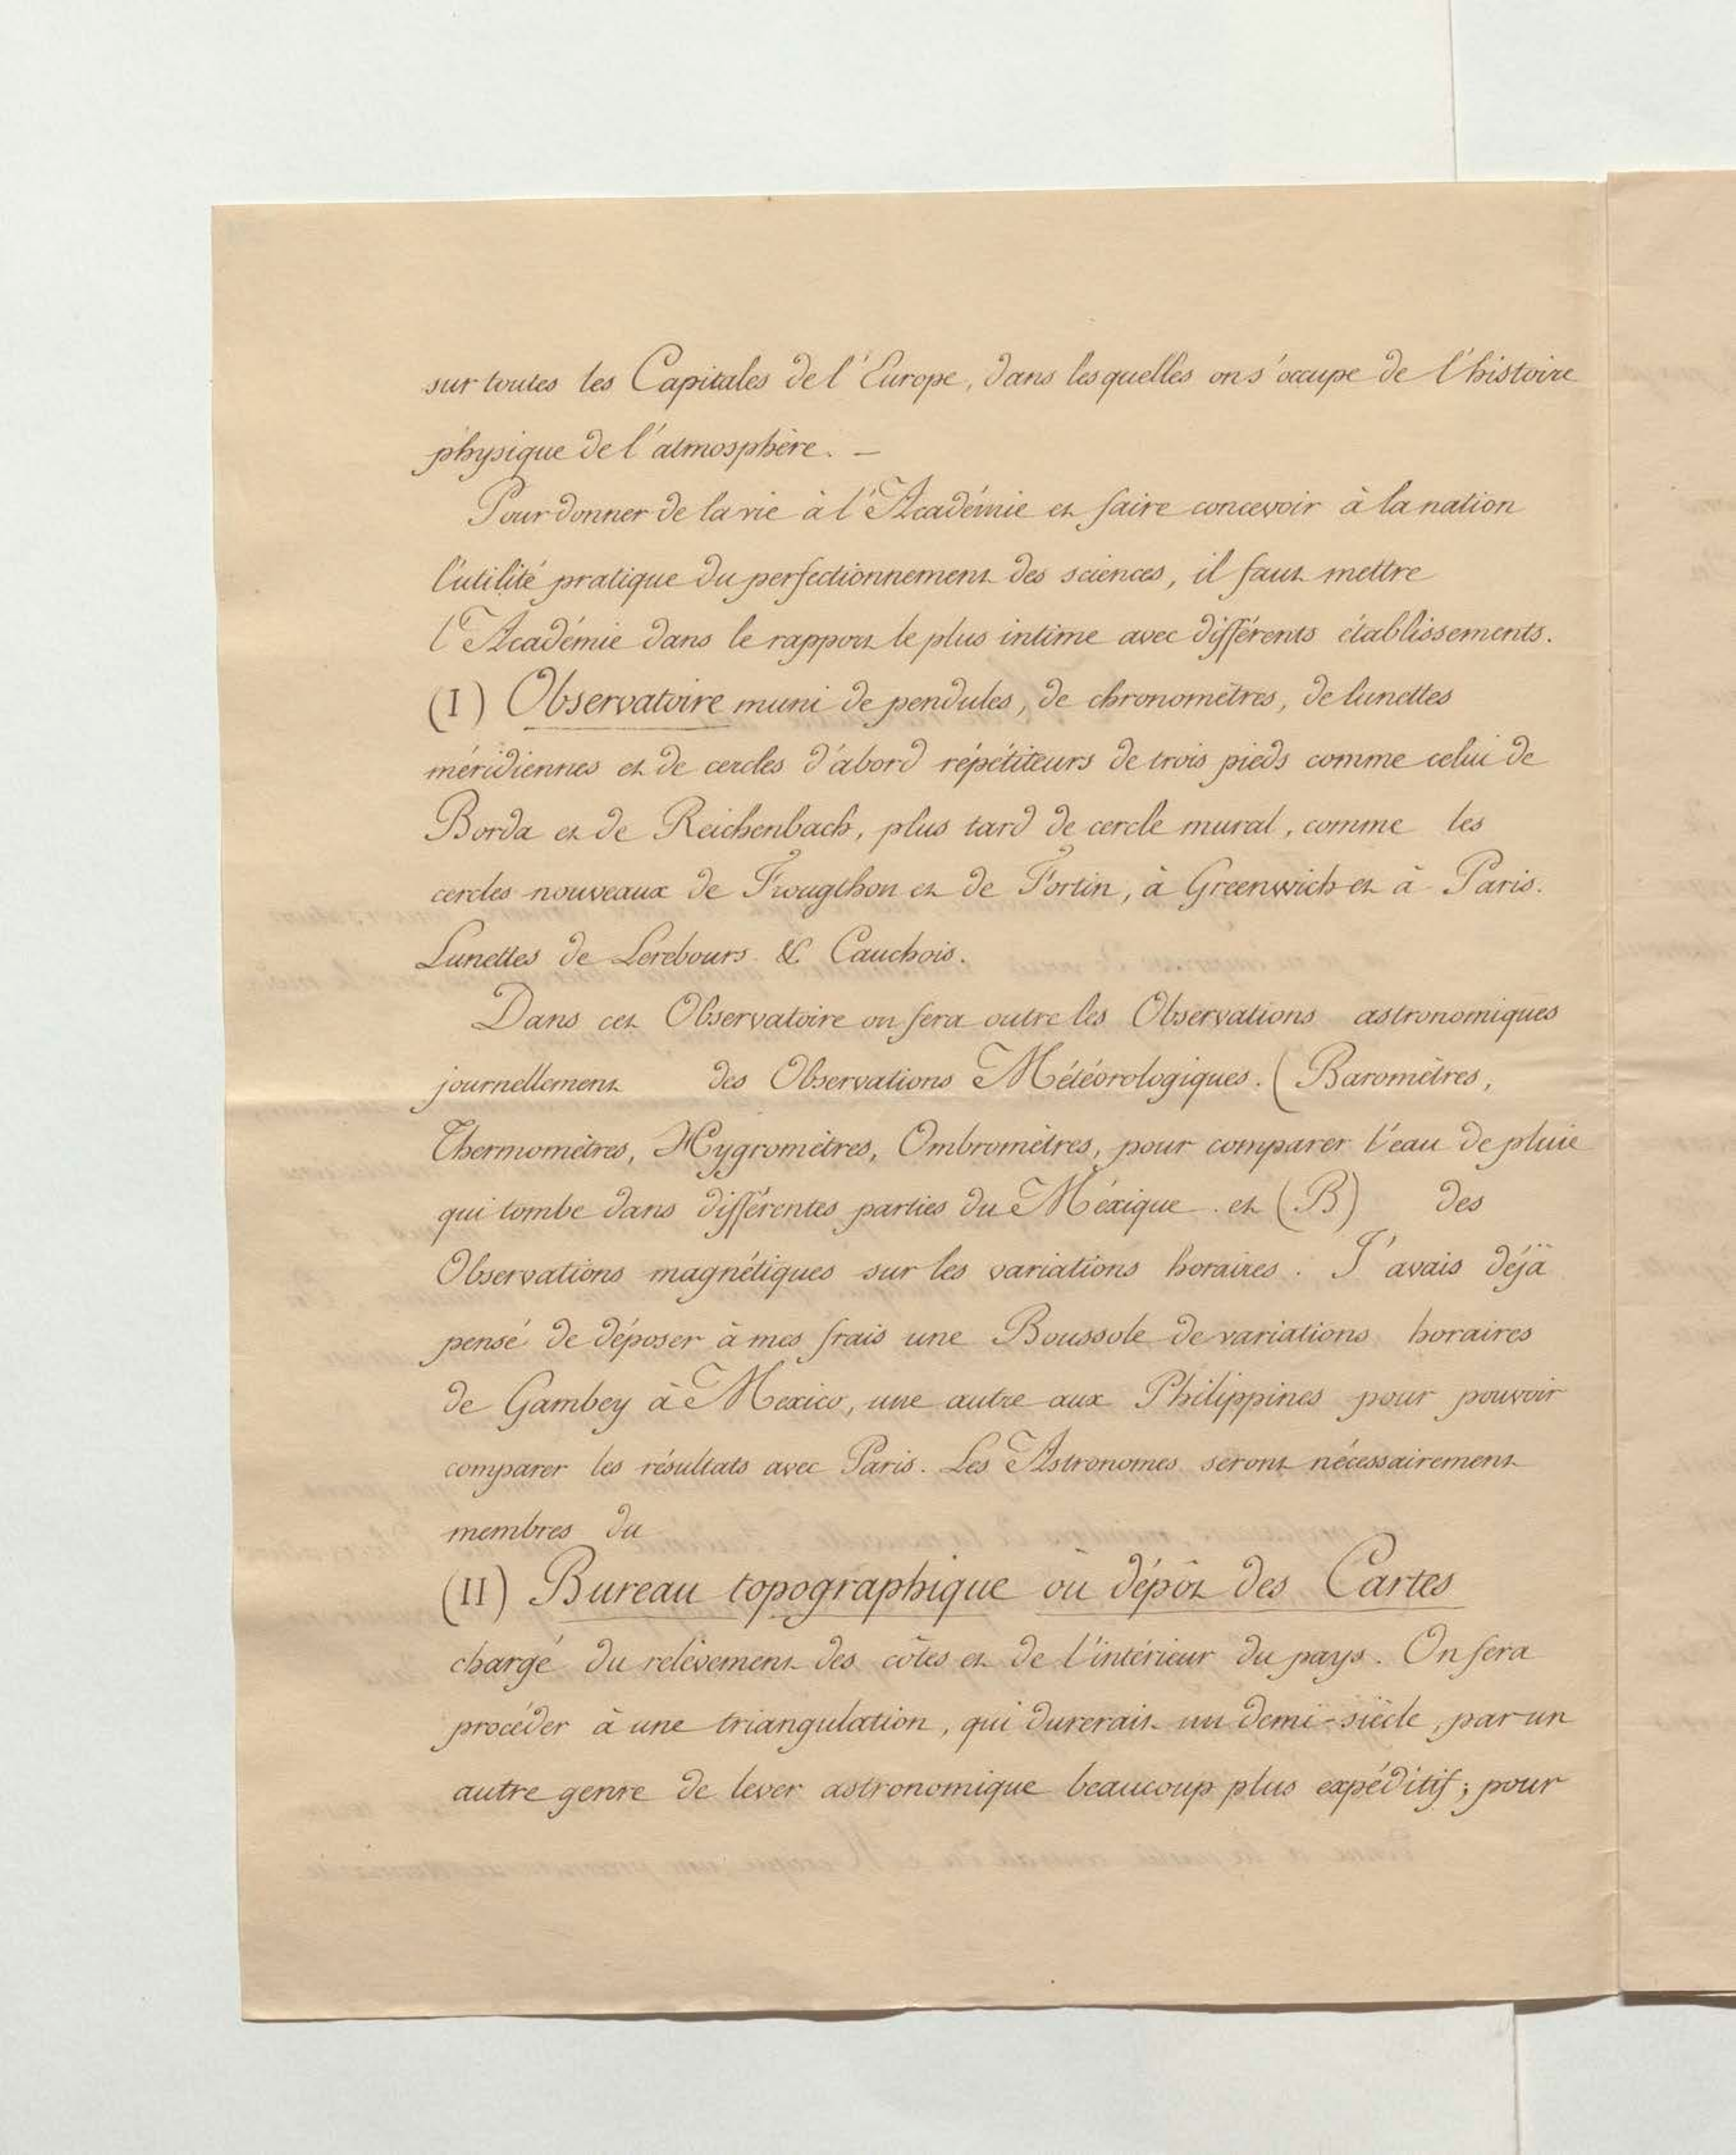 sur toutes les Capitales de l'Europe, dans lesquelles on s'occupe de l'histoire
physique de l'atmosphère. —
Pour donner de la vie à l'Académie et faire concevoir à la nation
l'utilité pratique du perfectionnement des sciences, il faut mettre
l'Académie dans le rapport le plus intime avec différents établissements.
(I) Observatoire muni de pendules, de chronomètres, de lunettes
méridiennes et de cercles d'abord répétiteurs de trois pieds comme celui de
Borda et de Reichenbach, plus tard de cercle mural, comme les
cercles nouveaux de Frougthon et de Fortin, à Greenwich et à Paris.
Lunettes de Lerebours & Cauchois.
Dans cet Observatoire on fera outre les Observations astronomiques
journellement des Observations Météorologiques. (Baromètres,
Thermomètres, Hygromètres, Ombromètres, pour comparer l'eau de pluie
qui tombe dans différentes parties du Méxique. et (B) des
Observations magnétiques sur les variations horaires. J'avais déjà
pensé de déposer à mes frais une Boussole de variations horaires
de Gambey à Mexico, une autre aux Philippines pour pouvoir
comparer les résultats avec Paris. Les Astronomes seront nécessairement
membres du
(II) Bureau topographique où dépôt des Cartes
chargé du relèvement des côtes et de l'intérieur du pays. On fera
procéder à une triangulation, qui durerait un demi-siècle, par un
autre genre de lever astronomique beaucoup plus expéditif; pour